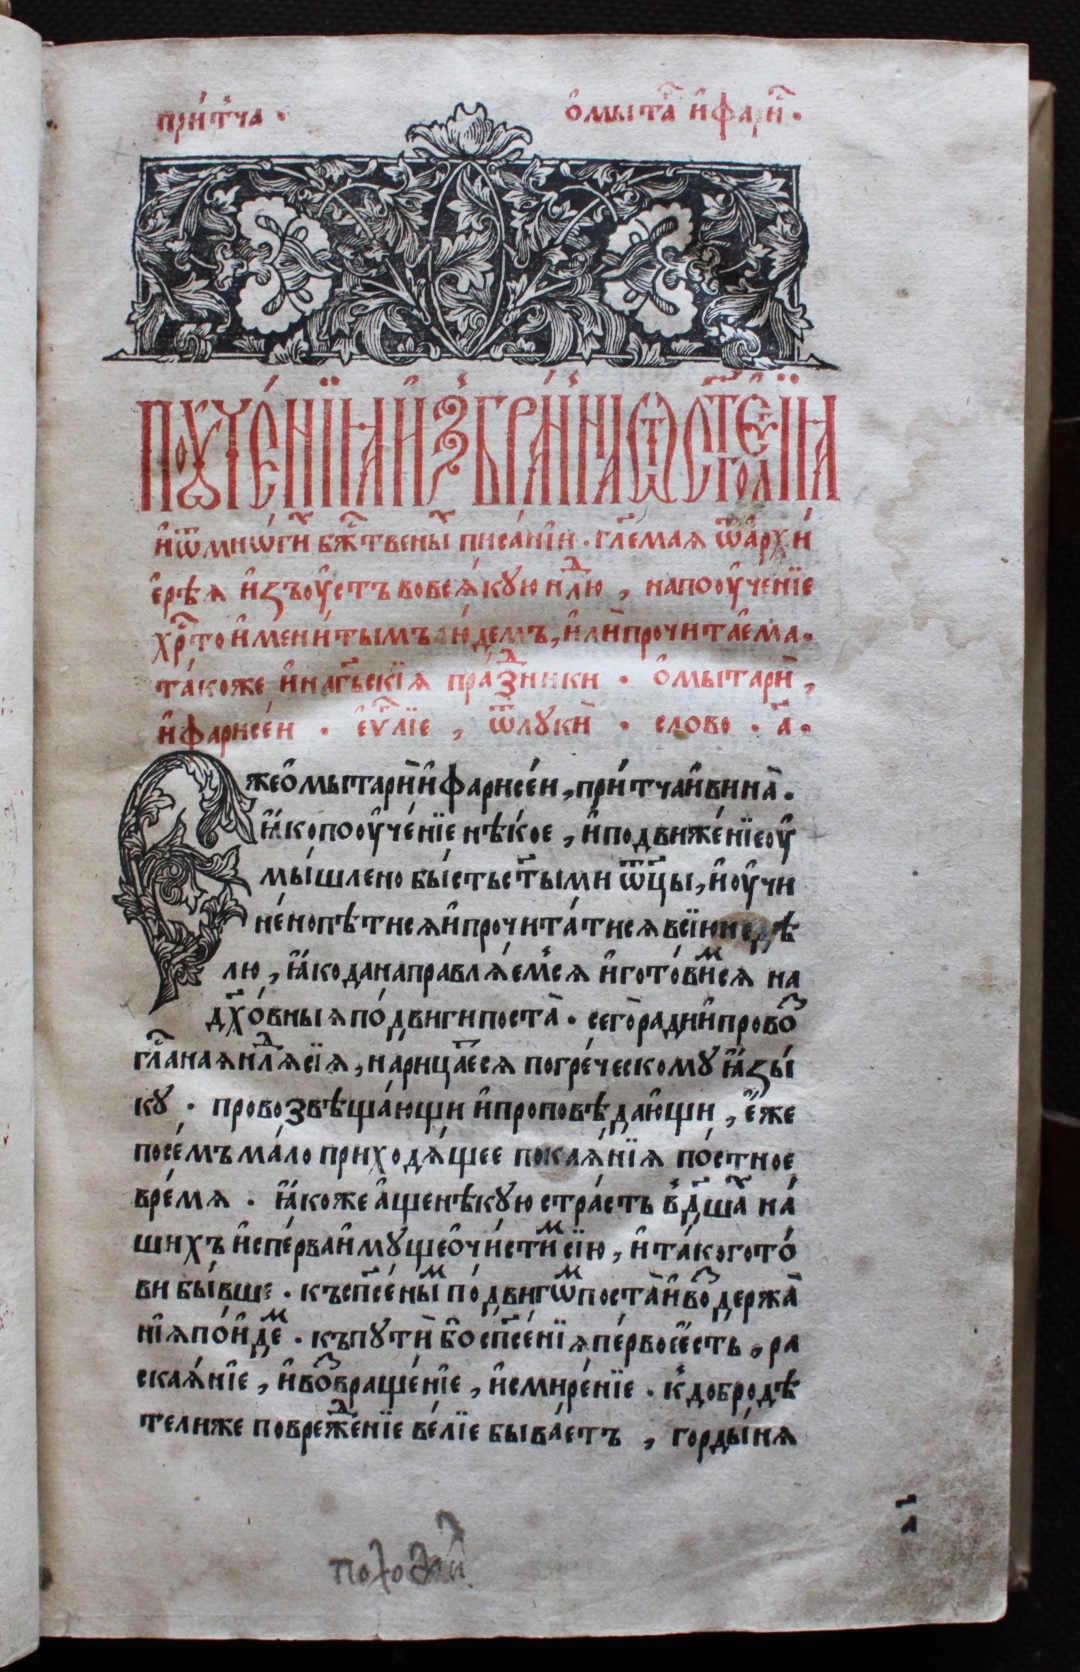 при́тча · ѡ мыта҇ и҆ фари҇ ·
поуче́нїѧ и҆збра́ннаѧ ѿ ст҃го є҆ѵ҃голїѧ
и҆ ѿ мно́ги бж҃твены писа́нїи · гл҃емаѧ ѿ а҆рхи
є҆ре́ѧ и҆зъ оу҆стъ во всѧ́кую нд҃лю , на пооу҆ченїе
хрⷭ҇то и҆мени́тымъ лю́демъ , и҆лѝ прочита́ема ·
та́коже и҆ на гд҃ьскїѧ пра́здники · ѡ҆ мытарѝ ,
и҆ фарисе́и · є҆ѵⷢ҇лїе , ѿ лукѝ · слово · а҃ ·
Иже ѡ҆ мытарѝ и҆ фарисе́и , при́тча и҆ вина̀ .
ꙗ҆́ко пооу҆че́нїе нѣ́кое , и҆ подвиже́нїе оу҆
мы́шлено бы́сть ст҃ыми ѿц҃ы , и҆ оу҆чи
не́но пѣ́тисѧ и҆ прочита́тисѧ в сїю недѣ
лю , ꙗ҆́ко да направлѧ́емсѧ и҆ гото́вимсѧ на
дх҃о́вныѧ по́двиги поста̀ · сего̀ ради и҆ провоз
гл҃анаѧ нд҃лѧ сїѧ , нарица́есѧ по гре́ческому ꙗ҆зы́
ку · провозвѣща́ющи и҆ проповѣ́дающи , є҆́же
по се́мъ ма́ло приходѧ́щее покаѧ́нїѧ по́стное
вре́мѧ · ꙗ҆́коже а҆́ще нѣ́кую стра́сть в дш҃а на́
шихъ и҆спе́рва и҆му́ще ѡ҆чи́стим сїю , и҆ та́ко гото́
ви бы́вше · къ сп҃се́ным по́двигѡм поста̀ и҆ воздержа̀
нїѧ по́йдем · къ пути́ бо сп҃се́нїѧ пе́рвое є҆́сть , ра
скаѧ́нїе , и҆ возвраще́нїе , и҆ смире́нїе · к доб родѣ́
тели же поврежде́нїе ве́лїе быва́етъ , горды́нѧ
а҃